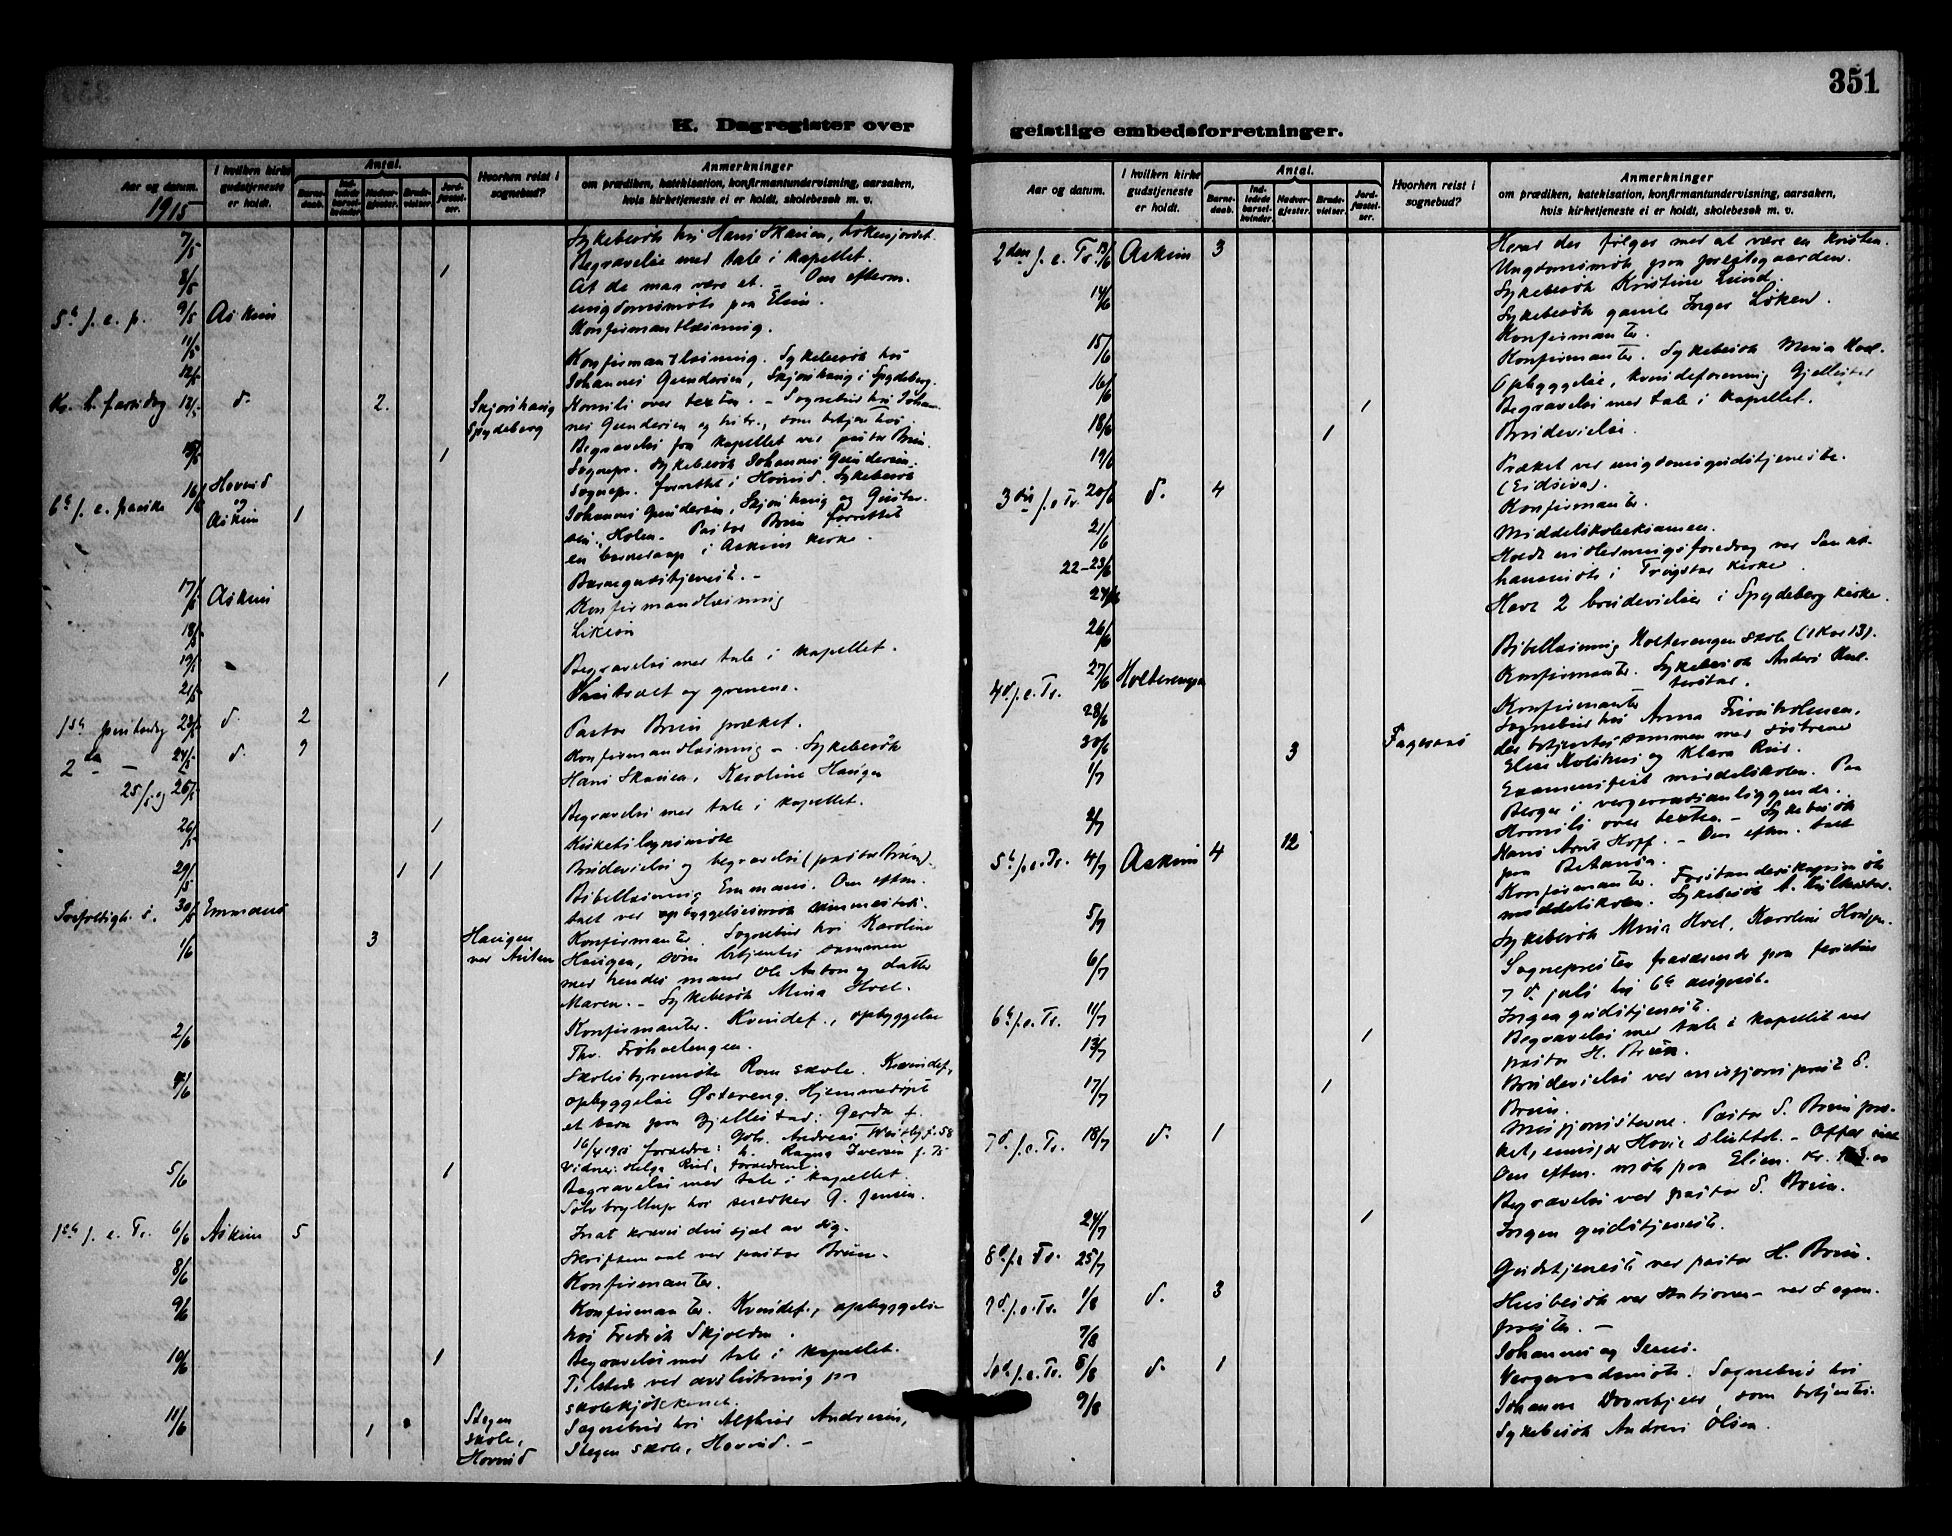 351
K. Dagregister over
geistlige embedsforretninger.
Aar og datum.
1915
I hvilken kirke gudstjeneste er holdt.
Antal.
Barnedaab.
Indledede barselkvinder.
Nadvergjester.
Brudevielser.
Jordfæstelser.
Hvorhen reist i sognebud?
Anmerkninger
om prædiken, katekisation, konfirmantundervisning, aarsaken,
hvis kirketjeneste ei er holdt, skolebesøk m. v.
7/5 Sykebesøk hos Hans Skauen,
8/5 1 Begravelse med tale i kapellet.
5te s. e. p. 9/5 Askim At de maa være et. - Om efterm.
ungdomsmøte paa Elim.
11/5 Konfirmantlæsning.
12/5 Konfirmantlæsning. Sykebesøk hos
Johannes Gundersen, Skjørshaug i Spydeberg.
Kr. h. farsdag 13/5 d. 2 Skjørshaug Spydeberg Homili over texten. - Sognebud hos Johan-
nes Gundersen og hustr., som betjentes.
15/5 1 Begravelse fra kapellet ved pastor Bruun.
Sognepr. Sykebesøk Johannes Gundersen.
6te s. e. paaske 16/5 Hovind og Askim 1 Sognepr. forrettet i Hovind. Sykebesøk
Johannes Gundersen, Skjørshaug og Gustav-
sen, Holen. Pastor Bruun forrettet
en barnedaap i Askim kirke.
17/5 Askim Barnegudstjeneste. -
18/5 Konfirmandlæsning
19/5 Likesaa
21/5 1 Begravelse med tale i kapellet.
1ste pinsedag 23/5 d. 2 Vintræet og grenene.
2den - - 24/5 d. 7 Pastor Bruun præket.
25/5 og 26/5 Konfirmandlæsning - Sykebesøk
Hans Skauen, Karoline Haugen
26/5 1 Begravelse med tale i kapellet.
Kirketilsynsmøte
29/5 1 1 Brudevielse og begravelse (pastor Bruun).
Trefoldigh. s. 30/5 Emmaus Bibellæsning Emmaus. Om eftm.
talt ved opbyggelsesmøte sammesteds.
1/6 3 Haugen ved Auten Konfirmanter. Sognebud hos Karoline
Haugen, som betjentes sammen
med hendes mand Ole Anton og datter
Maren. - Sykebesøk Mina Hvel.
2/6 Konfirmanter. Kvindef., opbyggelse
Thv. Frøhvelengen.
4/6 Skolestyremøte Rom skole. Kvindef.,
opbyggelse Østereng. Hjemmedøpt
et barn paa Gjellestad: Gerda f.
16/4 1915 forældre: Joh. Andreas Westby f. 58
h. Ragna Iversen f. 75
Vidner: Helga Rud, forældrene.
5/6 1 Begravelse med tale i kapellet.
Sølvbryllup hos snedker G. Jensen.
1ste s. e. Tr. 6/6 Askim 5 Inat kræves din sjæl av dig.
Skriftemaal ved pastor Bruun.
8/6 Konfirmanter.
9/6 Konfirmanter. Kvindef., opbyggelse
hos Fredrik Skjolden.
10/6 1 Begravelse med tale i kapellet.
Tilstede ved avslutning paa
skolekjøkkenet.
11/6 1 Stegen skole, Hovind Sognebud hos Alfhild Andresen,
Stegen skole, Hovind. -
Aar og datum.
I hvilken kirke gudstjeneste er holdt.
Antal.
Barnedaab.
Indledede barselkvinder.
Nadvergjester.
Brudevielser.
Jordfæstelser.
Hvorhen reist i sognebud?
Anmerkninger
om prædiken, katekisation, konfirmantundervisning, aarsaken,
hvis kirketjeneste ei er holdt, skolebesøk m. v.
2den s. e. Tr. 13/6 Askim 3 Hvad der følger med at være en kristen.
Ungdomsmøte paa prestegaarden.
14/6 Sykebesøk Kristine Lund.
Sykebesøk gamle Inger Løken.
15/6 Konfirmanter.
16/6 Konfirmanter. Sykebesøk Mina Hvel.
Opbyggelse, kvindeforening Gjellestad
18/6 1 Begravelse med tale i kapellet.
19/6 1 Brudevielse.
3die s. e. Tr. 20/6 d. 4 Præket ved ungdomsgudstjeneste.
(Eidsiva).
21/6 Konfirmanter.
22-23/6 Middelskoleeksamen.
24/6 Holdt indledningsforedrag ved Sankt-
hansmøte i Trøgstad kirke.
26/6 Havt 2 brudevielser i Spydeberg kirke.
4de s. e. Tr. 27/6 Holterengen Bibellæsning Holterengen skole (1 Kor 13).
28/6 Konfirmanter. Sykebesøk Anders
30/6 3 Fagernes Konfirmanter
Sognebud hos Anna
der betjentes sammen med søstrene
Elise og Klara Rud.
1/7 Examensfest middelskolen. Paa
2/7 Berger i vergeraadsanliggende.
5te s. e. Tr. 4/7 Askim 4 12 Homili over texten - Sykebesøk
Hans Arnt Hopf. - Om eftm. talt
paa Betania.
5/7 Konfirmanter.
middelskolen. Sykebesøk A.
6/7 Sykebesøk Mina Hvel, Karoline Haugen.
Sognepresten fraværende paa ferietur
7de juli til 6te august.
6te s. e. Tr. 11/7 Ingen gudstjeneste.
13/7 1 Begravelse med tale i kapellet ved
pastor H. Bruun.
17/7 1 Brudevielse ved misjonsprest S.
Bruun.
7de s. e. Tr. 18/7 d. 1 Misjonsstevne. Pastor S. Bruun præ-
ket, emisjær Hovie sluttet. - Offer
Om eftm. møte paa Elim. Kr.
24/7 1 Begravelse ved pastor S. Bruun.
8de s. e. Tr. 25/7 Ingen gudstjeneste.
9de s. e. Tr. 1/8 d. 3 Gudstjeneste ved pastor H. Bruun.
7/8 Husbesøk ved stationen - ved sogne-
presten. -
10de s. e. Tr. 8/8 d. 1 Johannes og Jesus.
9/8 Vergeraadsmøte. Sognebud hos
Johanne som betjentes.
Sykebesøk Andreas Olsen.